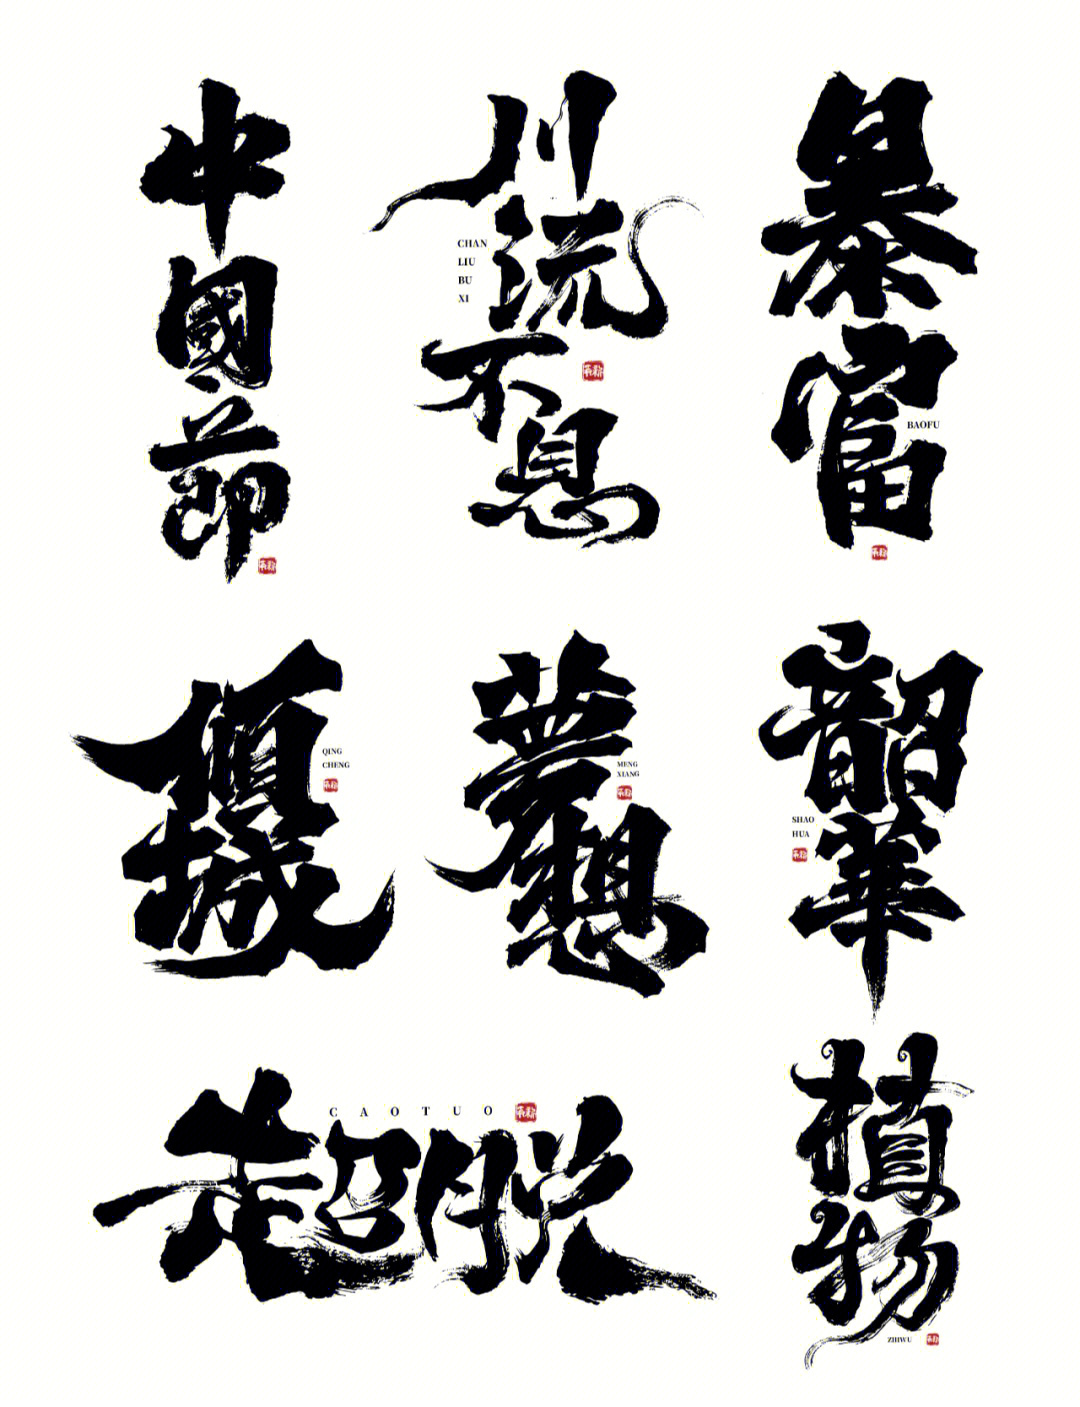 中國節
川流不息
CHAN
LIU
BU
XI
暴富
BAOFU
傾城
QING
CHENG
夢想
MENG
XIANG
韶華
SHAO
HUA
超脱
CAOTUO
植物
ZHIWU